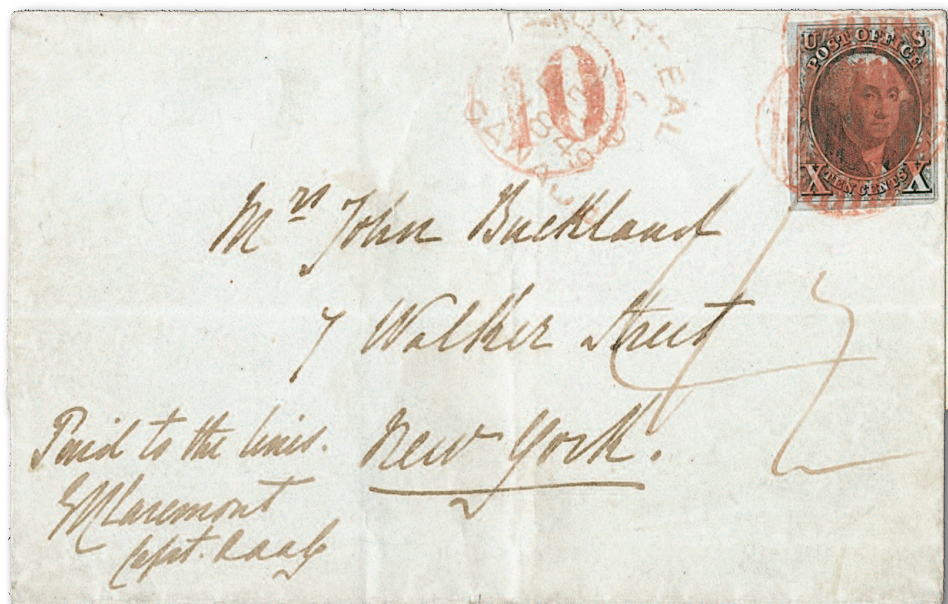 MONTREAL
CANADA
10
U S
POST OFFICE
X TEN CENTS X
Mrs John Buckland
7 Walker Street
New York.
Paid to the lines.